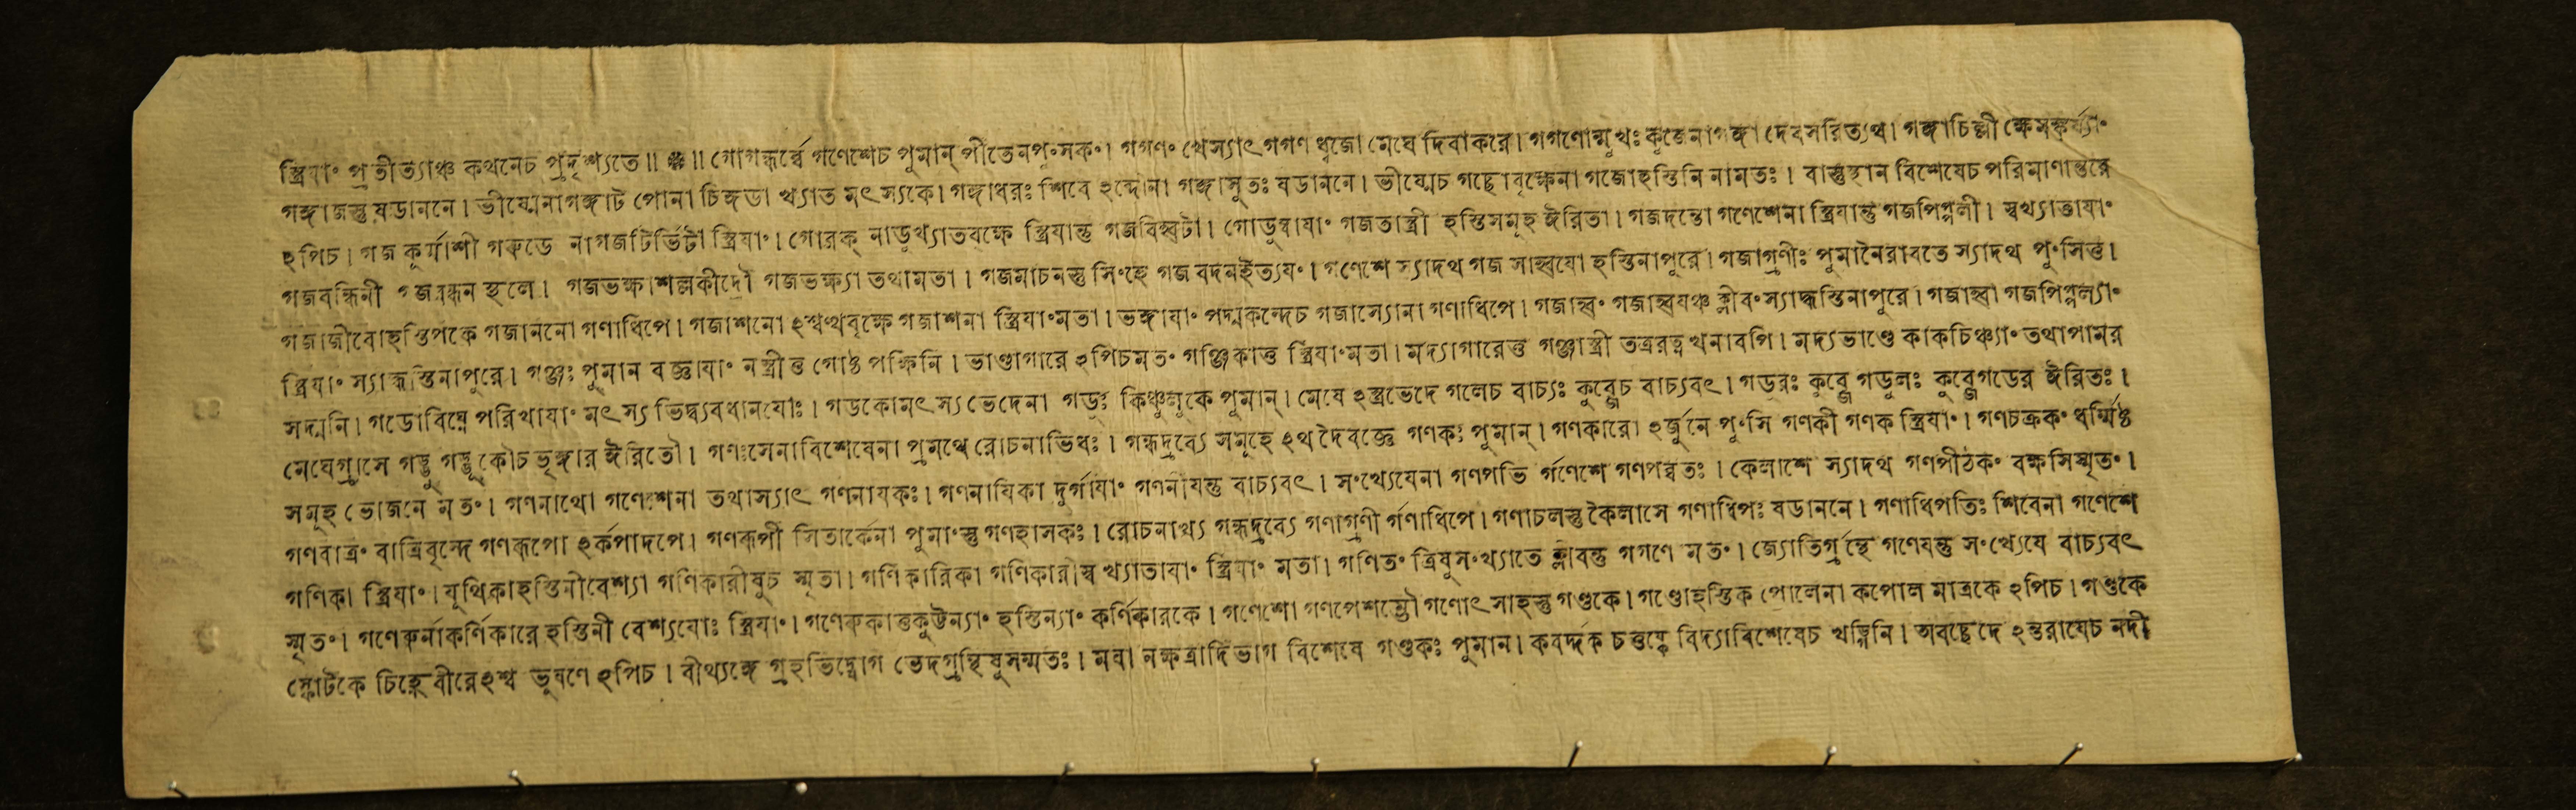 স্ত্রিযাং প্রতীত্যাঞ্চ কথনেচ প্রদৃশ্যতে॥ ❋ ॥ গোগন্ধর্ব্বে গণেশেচ পুমান্ পীতেনপুংসকং। গগণং খেস্যাৎ গগণ ধ্বজো মেঘে দিবাকরে। গগণোন্মুখঃ কূজেনাগঙ্গা দেবসরিত্যথ। গঙ্গাচিল্লী ক্ষেমঙ্কর্য্যাং
গঙ্গাজস্তু ষডাননে। ভীষ্মেনাগঙ্গাট পোনা চিঙ্গডা খ্যাত মৎস্যকে। গঙ্গাধরঃ শিবে ঽব্দোনা গঙ্গাসুতঃ ষডাননে। ভীষ্মেচ গছোবৃক্ষেনা গজোহস্তিনি নামতঃ। বাস্তুস্থান বিশেষেচ পরিমাণান্তরে
ঽপিচ। গজ কূর্ম্মাশী গরুডে নাগজটির্ভিটা স্ত্রিযাং। গোরক্ নাডুখ্যাতবক্ষে স্ত্রিযান্তু গজবিশ্বটা। গোডুম্বাযাং গজতাস্ত্রী হস্তিসমূহ ঈরিতা। গজদন্তো গণেশেনা স্ত্রিযান্তু গজপিপ্পলী। স্বখ্যাত্তাযাং
গজবন্ধিনী গজবন্ধন স্থলে। গজভক্ষাশল্লকীদ্রৌ গজভক্ষ্যা তথামতা। গজমাচনস্তু সিংহে গজ বদনইত্যযং। গণেশে স্যাদথ গজ সাহ্বযো হস্তিনাপুরে। গজাগ্রণীঃ পুমানৈরাবতে স্যাদথ পুংসিত্ত।
গজাজীবোহস্তিপকে গজাননো গণাধিপে। গজাশনো ঽশ্বত্থবৃক্ষে গজাশনা স্ত্রিযাংমতা। ভঙ্গাযাং পদ্মকন্দেচ গজাস্যোনা গণাধিপে। গজাহ্বং গজাহ্বযঞ্চ ক্লীবংস্যাদ্ধস্তিনাপুরে। গজাহ্বা গজপিপ্পল্যাং
স্ত্রিযাং স্যাদ্ধস্তিনাপুরে। গঞ্জঃ পুমান বজ্ঞাযাং নস্ত্রীত্ত গোষ্ঠ পক্ষিনি। ভাণ্ডাগারে ঽপিচমতং গঞ্জিকাত্ত স্ত্রিযাংমতা। মদ্যাগারেত্ত গঞ্জাস্ত্রী তত্ররত্নখনাবপি। মদ্যভাণ্ডে কাকচিঞ্চ্যাং তথাপামর
সদ্মনি। গডোবিঘ্নে পরিখাযাং মৎস্য ভিদ্ব্যবধানযোঃ। গডকোমৎস্যভেদেনা গডুঃ কিঞ্চুলুকে পুমান্। মেষে ঽস্ত্রভেদে গলেচ বাচ্যঃ কুব্জেচ বাচ্যবৎ। গডুরঃ কুব্জে গডুলঃ কুব্জেগডের ঈরিতঃ।
মেঘেগ্রাসে গড্ডু গড্ডূকৌচ ভৃঙ্গার ঈরিতৌ। গণঃসেনাবিশেষেনা প্রমথে রোচনাভিধঃ। গন্ধদ্রব্যে সমূহে ঽথ দৈবজ্ঞে গণকঃ পুমান্। গণকারো ঽর্জুনে পুংসি গণকী গণক স্ত্রিযাং। গণচক্রকং ধর্ম্মিষ্ঠ
সমূহ ভোজনে মতং। গণনাথো গণেশেনা তথাস্যাৎ গণনাযকঃ। গণনাযিকা দুর্গাযাং গণনীযন্তু বাচ্যবৎ। সংখ্যেযেনা গণপতি র্গণেশে গণপব্বতঃ। কৈলাশে স্যাদথ গণপীঠকং বক্ষসিস্মৃতং।
গণবাত্রং বাত্রিবৃন্দে গণরূপো ঽর্কপাদপে। গণরূপী সিতার্কেনা পুমাংস্তু গণহাসকঃ। রোচনাখ্য গন্ধদ্রব্যে গণাগ্রণী র্গণাধিপে। গণাচলস্তু কৈলাসে গণাধিপঃ ষডাননে। গণাধিপতিঃ শিবেনা গণেশে
গণিকা স্ত্রিযাং। যূথিকাহস্তিনীবেশ্যা গণিকারীষুচ স্মৃতা। গণিকারিকা গণিকারীস্ব খ্যাতাযাং স্ত্রিযাং মতা। গণিতং ত্রিষুসংখ্যাতে ক্লীবন্তু গগণে মতং। জ্যোতিগ্রন্থে গণেযন্তু সংখ্যেযে বাচ্যবৎ
স্মৃতং। গণেরুর্নাকর্ণিকারে হস্তিনী বেশ্যযোঃ স্ত্রিযাং। গণেরুকাত্তকুট্টন্যাং হস্তিন্যাং কর্ণিকারকে। গণেশো গণপেশম্ভৌ গণোৎসাহস্তু গণ্ডকে। গণ্ডোহস্তিক পোলেনা কপোল মাত্রকে ঽপিচ। গণ্ডকে
স্ফোটকে চিহ্নেবীরেঽশ্ব ভূষণে ঽপিচ। বীথ্যঙ্গে গ্রহভিদ্যোগ ভেদগ্রন্থিষুসম্মতঃ। মবা নক্ষত্রাদিভাগ বিশেষে গণ্ডকঃ পুমান। কবর্দ্দক চত্তষ্কে বিদ্যাবিশেষেচ খড়্গিনি। অবচ্ছেদে ঽন্তরাযেচ নদী